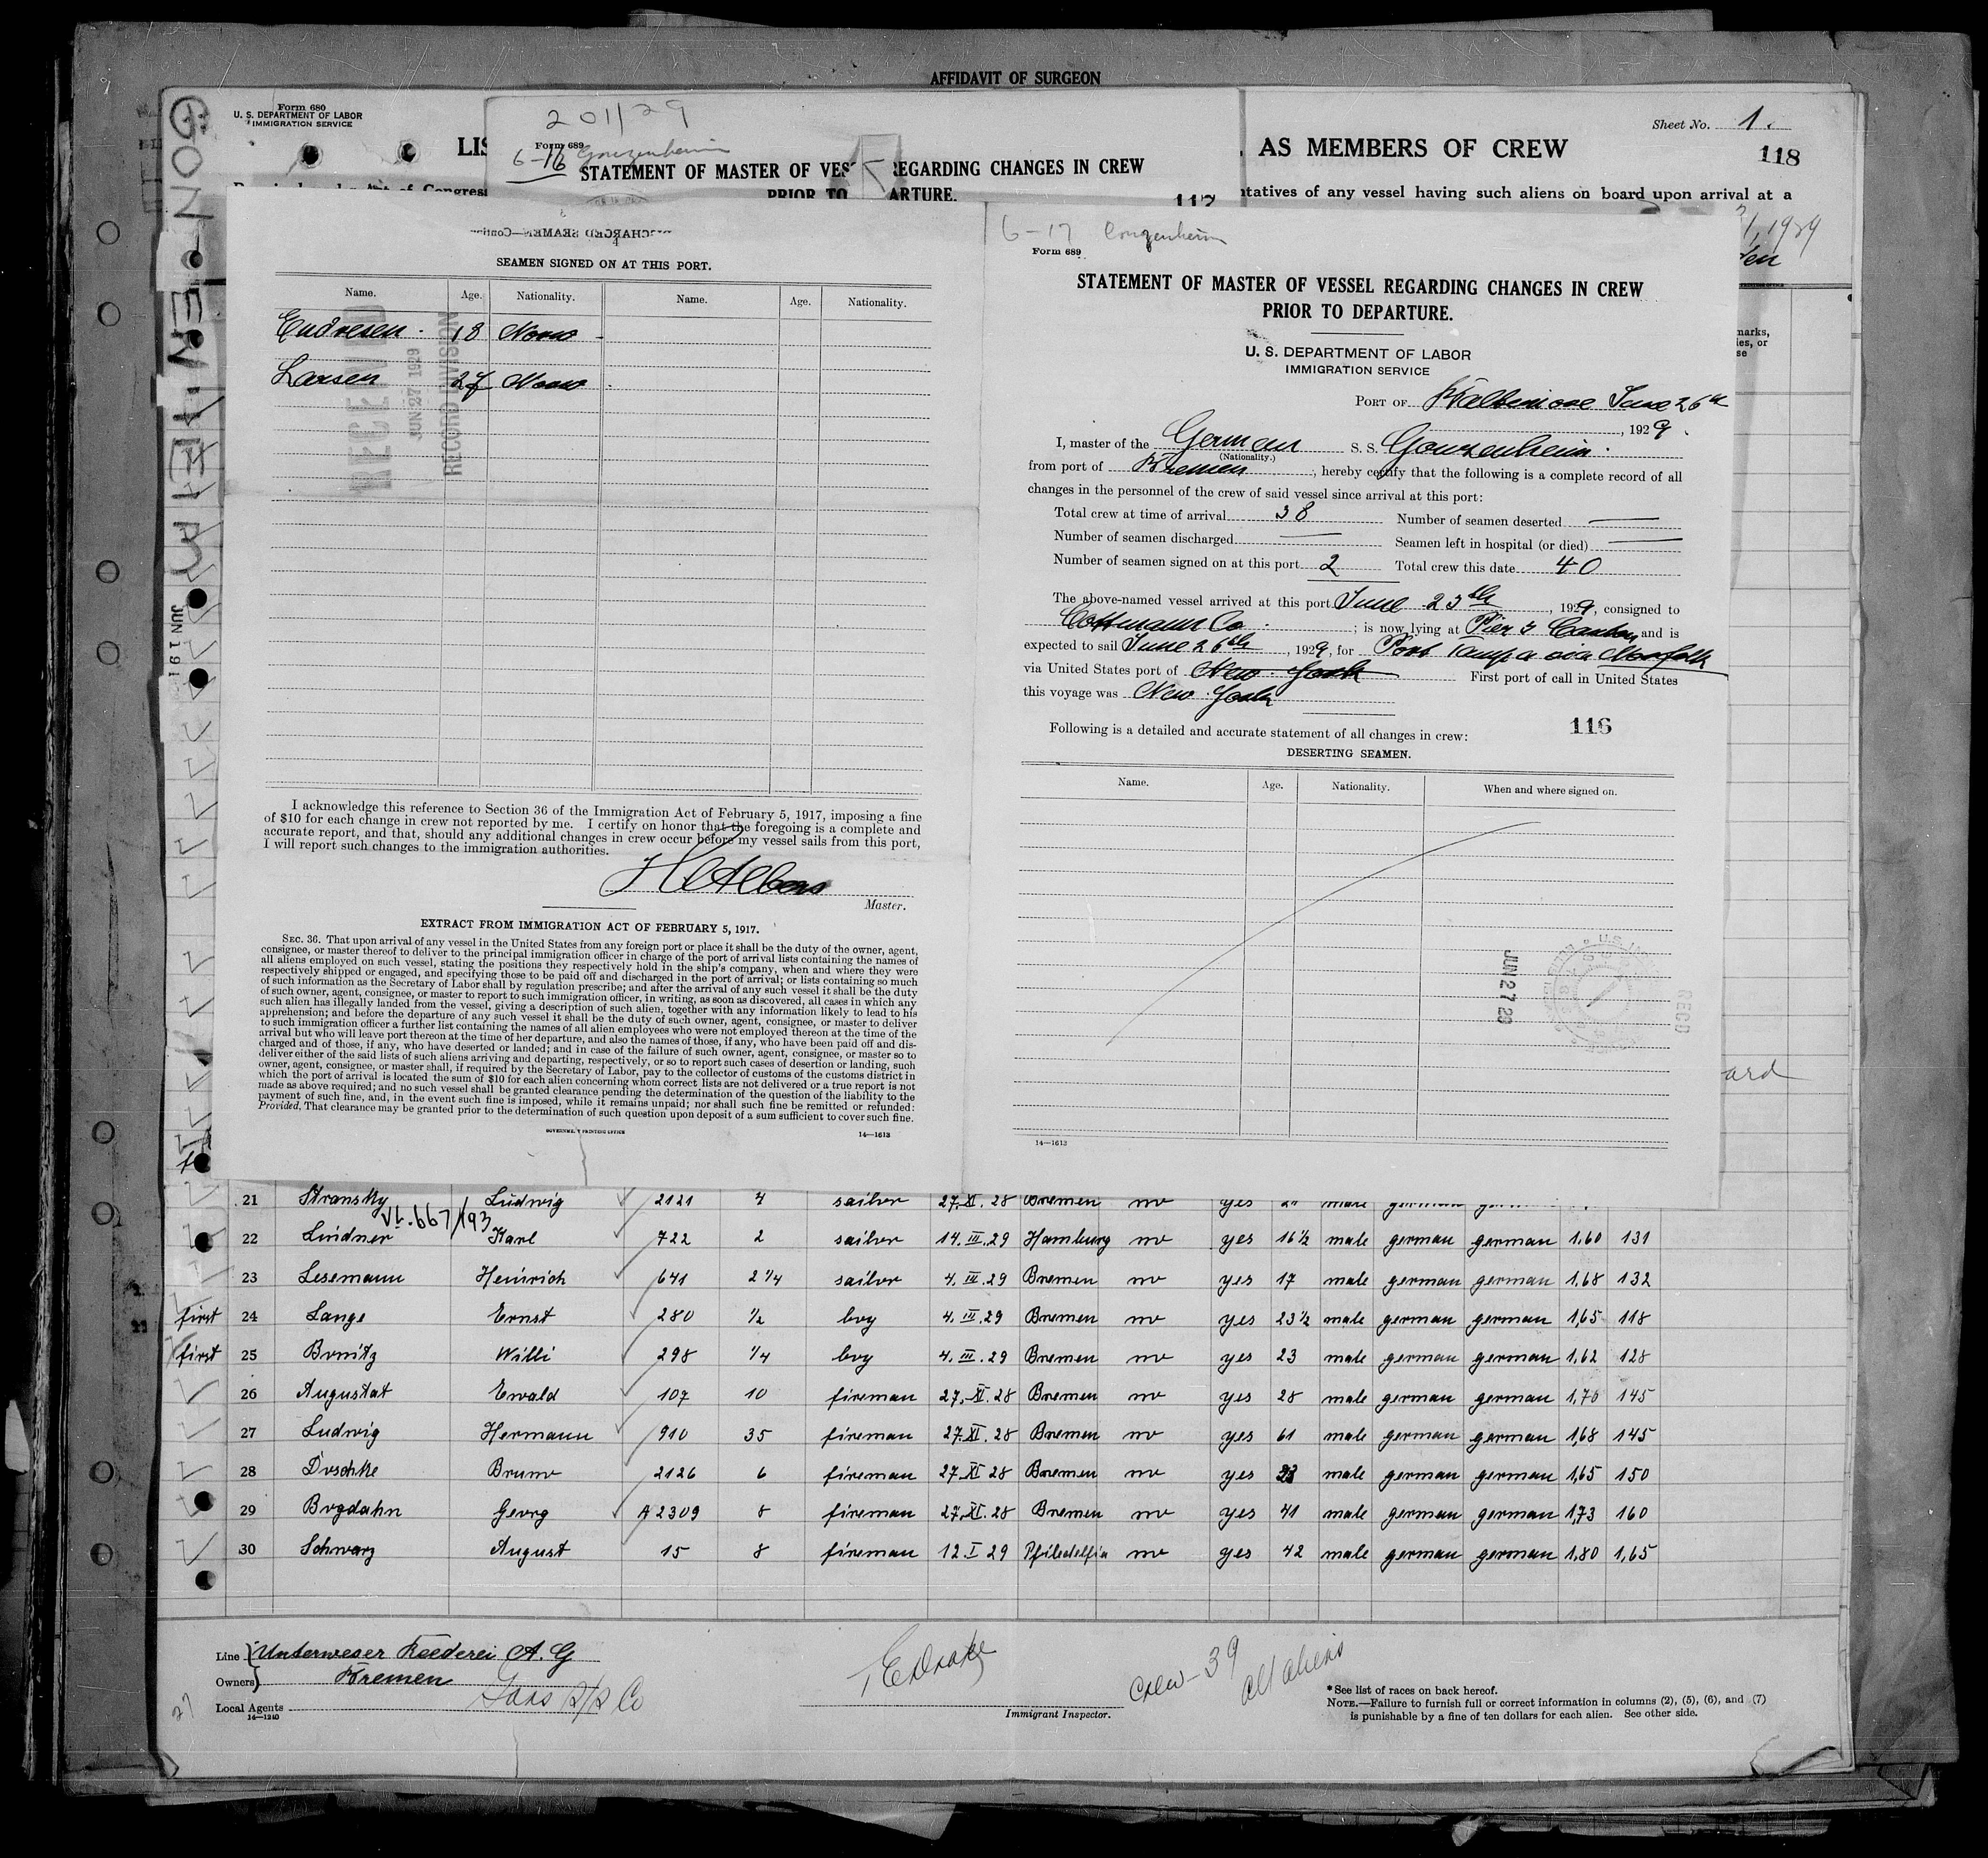 AFFIDAVIT OF SURGEON
Form 680
U. S. DEPARTMENT OF LABOR
IMMIGRATION SERVICE
LIS
AS MEMBERS OF CREW
Sheet No. 1.
118
tatives of any vessel having such aliens on board upon arrival at a
201/29
Form 689
6-16 Gonzenheim
STATEMENT OF MASTER OF VES REGARDING CHANGES IN CREW
PRIOR TO ARTURE.
117
1, 1929
GONZENHEIM
JUN 19
SEAMEN SIGNED ON AT THIS PORT.
Name. Age. Nationality. Name. Age. Nationality.
Endresen 18 Norw
Larsen 27 Norw
RECEIVED
JUN 27 1929
RECORD DIVISION
I acknowledge this reference to Section 36 of the Immigration Act of February 5, 1917, imposing a fine
of $10 for each change in crew not reported by me. I certify on honor that the foregoing is a complete and
accurate report, and that, should any additional changes in crew occur before my vessel sails from this port,
I will report such changes to the immigration authorities.
H Albers
Master.
EXTRACT FROM IMMIGRATION ACT OF FEBRUARY 5, 1917.
SEC. 36. That upon arrival of any vessel in the United States from any foreign port or place it shall be the duty of the owner, agent,
consignee, or master thereof to deliver to the principal immigration officer in charge of the port of arrival lists containing the names of
all aliens employed on such vessel, stating the positions they respectively hold in the ship's company, when and where they were
respectively shipped or engaged, and specifying those to be paid off and discharged in the port of arrival; or lists containing so much
of such information as the Secretary of Labor shall by regulation prescribe; and after the arrival of any such vessel it shall be the duty
of such owner, agent, consignee, or master to report to such immigration officer, in writing, as soon as discovered, all cases in which any
such alien has illegally landed from the vessel, giving a description of such alien, together with any information likely to lead to his
apprehension; and before the departure of any such vessel it shall be the duty of such owner, agent, consignee, or master to deliver
to such immigration officer a further list containing the names of all alien employees who were not employed thereon at the time of the
arrival but who will leave port thereon at the time of her departure, and also the names of those, if any, who have been paid off and dis-
charged and of those, if any, who have deserted or landed; and in case of the failure of such owner, agent, consignee, or master so to
deliver either of the said lists of such aliens arriving and departing, respectively, or so to report such cases of desertion or landing, such
owner, agent, consignee, or master shall, if required by the Secretary of Labor, pay to the collector of customs of the customs district in
which the port of arrival is located the sum of $10 for each alien concerning whom correct lists are not delivered or a true report is not
made as above required; and no such vessel shall be granted clearance pending the determination of the question of the liability to the
payment of such fine, and, in the event such fine is imposed, while it remains unpaid; nor shall such fine be remitted or refunded:
Provided, That clearance may be granted prior to the determination of such question upon deposit of a sum sufficient to cover such fine.
14—1613
6-17 Gonzenheim
Form 689
STATEMENT OF MASTER OF VESSEL REGARDING CHANGES IN CREW
PRIOR TO DEPARTURE.
U. S. DEPARTMENT OF LABOR
IMMIGRATION SERVICE
PORT OF Baltimore June 26th
, 1929.
I, master of the German S. S. Gonzenheim
(Nationality.)
from port of Bremen, hereby certify that the following is a complete record of all
changes in the personnel of the crew of said vessel since arrival at this port:
Total crew at time of arrival 38 Number of seamen deserted —
Number of seamen discharged — Seamen left in hospital (or died) —
Number of seamen signed on at this port 2 Total crew this date 40
The above-named vessel arrived at this port June 23th, 1929, consigned to
Cottmann Co.; is now lying at Pier 3 Canton and is
expected to sail June 26th, 1929, for Port Tampa via Norfolk
via United States port of New York First port of call in United States
this voyage was New York
116
Following is a detailed and accurate statement of all changes in crew:
DESERTING SEAMEN.
Name. Age. Nationality. When and where signed on.
JUN 27 29
14—1613
21 Stransky Ludwig 2121 4 sailor 27.XI.28 Bremen no yes
VL.667/193
22 Lindner Karl 722 2 sailor 14.III.29 Hamburg no yes 16½ male german german 1,60 131
23 Lesemann Heinrich 641 2¼ sailor 4.III.29 Bremen no yes 17 male german german 1,68 132
first 24 Lange Ernst 280 ½ boy 4.III.29 Bremen no yes 23½ male german german 1,65 118
first 25 Bonitz Willi 298 ¼ boy 4.III.29 Bremen no yes 23 male german german 1,62 128
26 Augustat Ewald 107 10 fireman 27.XI.28 Bremen no yes 28 male german german 1,70 145
27 Ludwig Hermann 910 35 fireman 27.XI.28 Bremen no yes 61 male german german 1,68 145
28 Doschke Bruno 2126 6 fireman 27.XI.28 Bremen no yes male german german 1,65 150
29 Bogdahn Georg A 2309 8 fireman 27.XI.28 Bremen no yes 41 male german german 1,73 160
30 Schwarz August 15 8 fireman 12.I.29 Philadelfia no yes 42 male german german 1,80 1,65
Line Unterweser Reederei A. G
Owners Bremen
Local Agents Gans S/S Co
14—1240
27
Immigrant Inspector.
Crew - 39
all aliens
* See list of races on back hereof.
NOTE.—Failure to furnish full or correct information in columns (2), (5), (6), and (7)
is punishable by a fine of ten dollars for each alien. See other side.